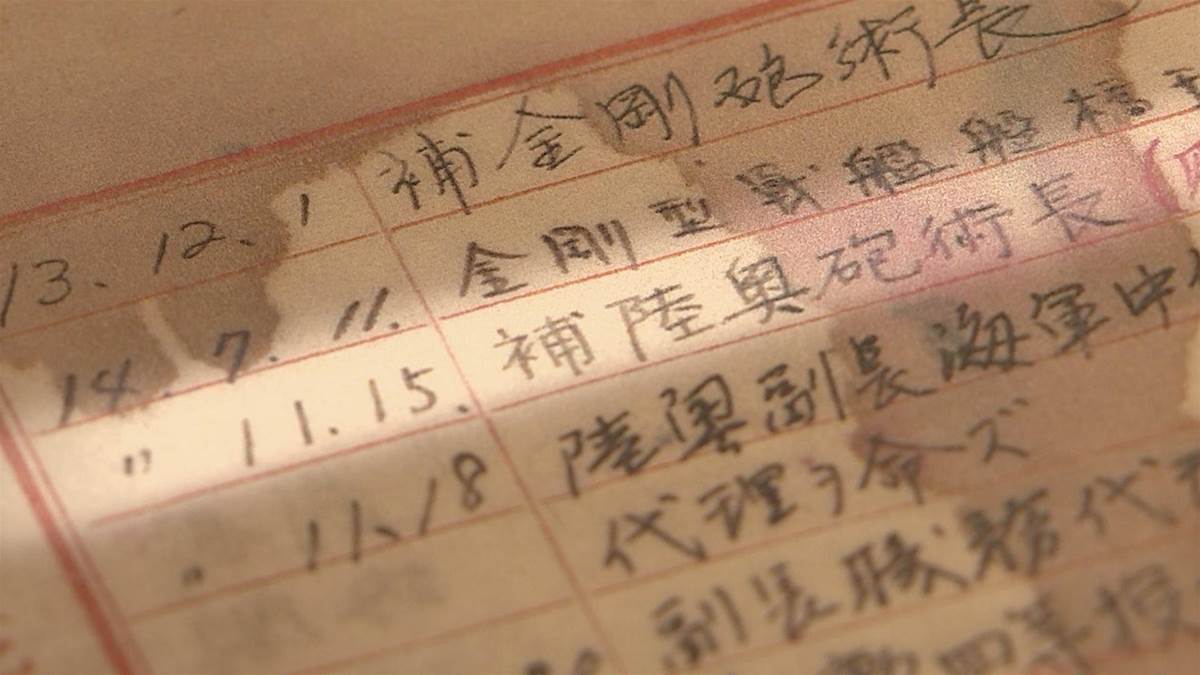 13. 12. 1 補金剛砲術長
14. 7. 11. 金剛型戦艦艦橋
〃 11. 15. 補陸奥砲術長(
〃 11. 18 陸奥副長海軍中
代理ヲ命ズ
副長職務代
四等